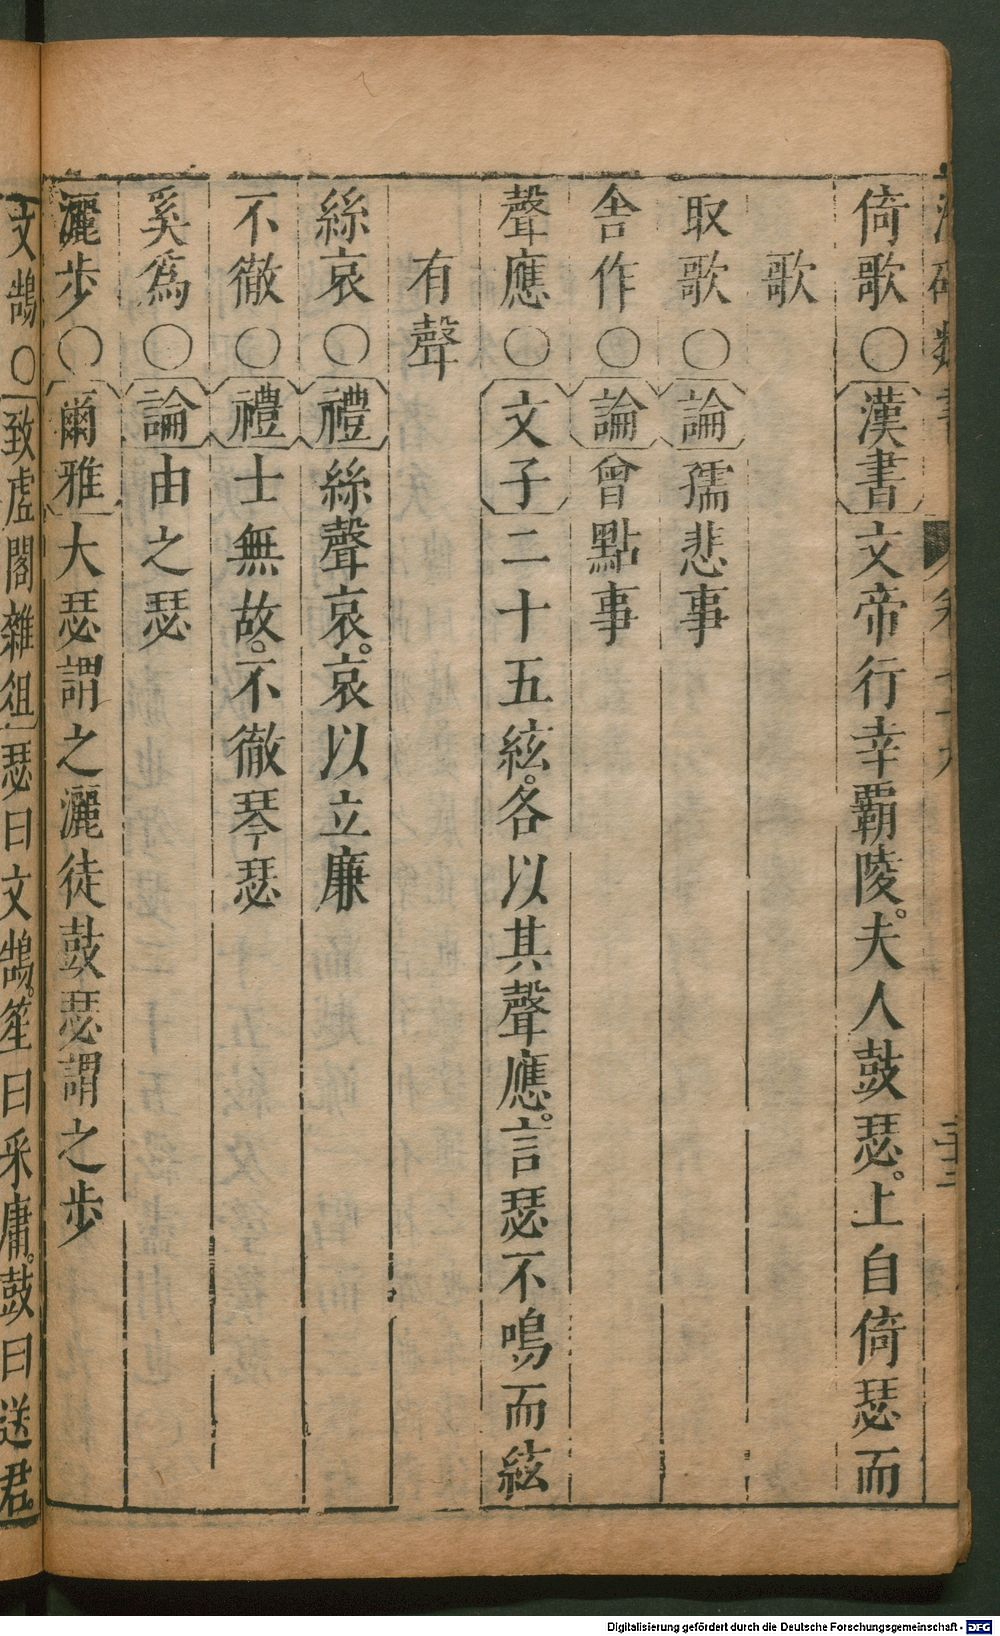 倚歌○漢書文帝行幸覇陵。夫人鼓瑟。上自倚瑟而
歌
取歌○論孺悲事
舎作○論曾點事
聲應○文子二十五絃。各以其聲應。言瑟不鳴而絃
有聲
絲哀○禮絲聲哀。哀以立廉
不徹○禮士無故。不徹琴瑟
奚爲○論由之瑟
灑步○爾雅大瑟謂之灑徒鼓瑟謂之步
文鵠○致虛閣雜俎瑟曰文鵠。笙曰采庸。鼓曰送君。
Digitalisierung gefördert durch die Deutsche Forschungsgemeinschaft - DFG